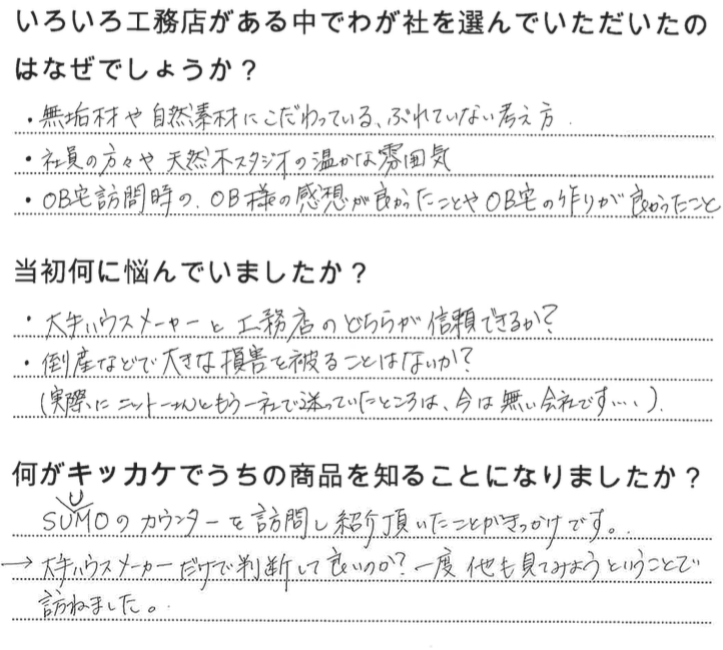 いろいろ工務店がある中でわが社を選んでいただいたの
はなぜでしょうか？
・無垢材や自然素材にこだわっている、ぶれていない考え方．
・社員の方々や天然木スタジオの温かな雰囲気
・OB宅訪問時の、OB様の感想が良かったことやOB宅の作りが良かったこと
当初何に悩んでいましたか？
・大手ハウスメーカーと工務店のどちらが信頼できるか？
・倒産などで大きな損害を被ることはないか？
(実際にニットーさんともう一社で迷っていたところは、今は無い会社です…、).
何がキッカケでうちの商品を知ることになりましたか？
U
SUMOのカウンターを訪問し紹介頂いたことがきっかけです。
→大手ハウスメーカーだけで判断して良いのか？一度他も見てみようということで
訪ねました。